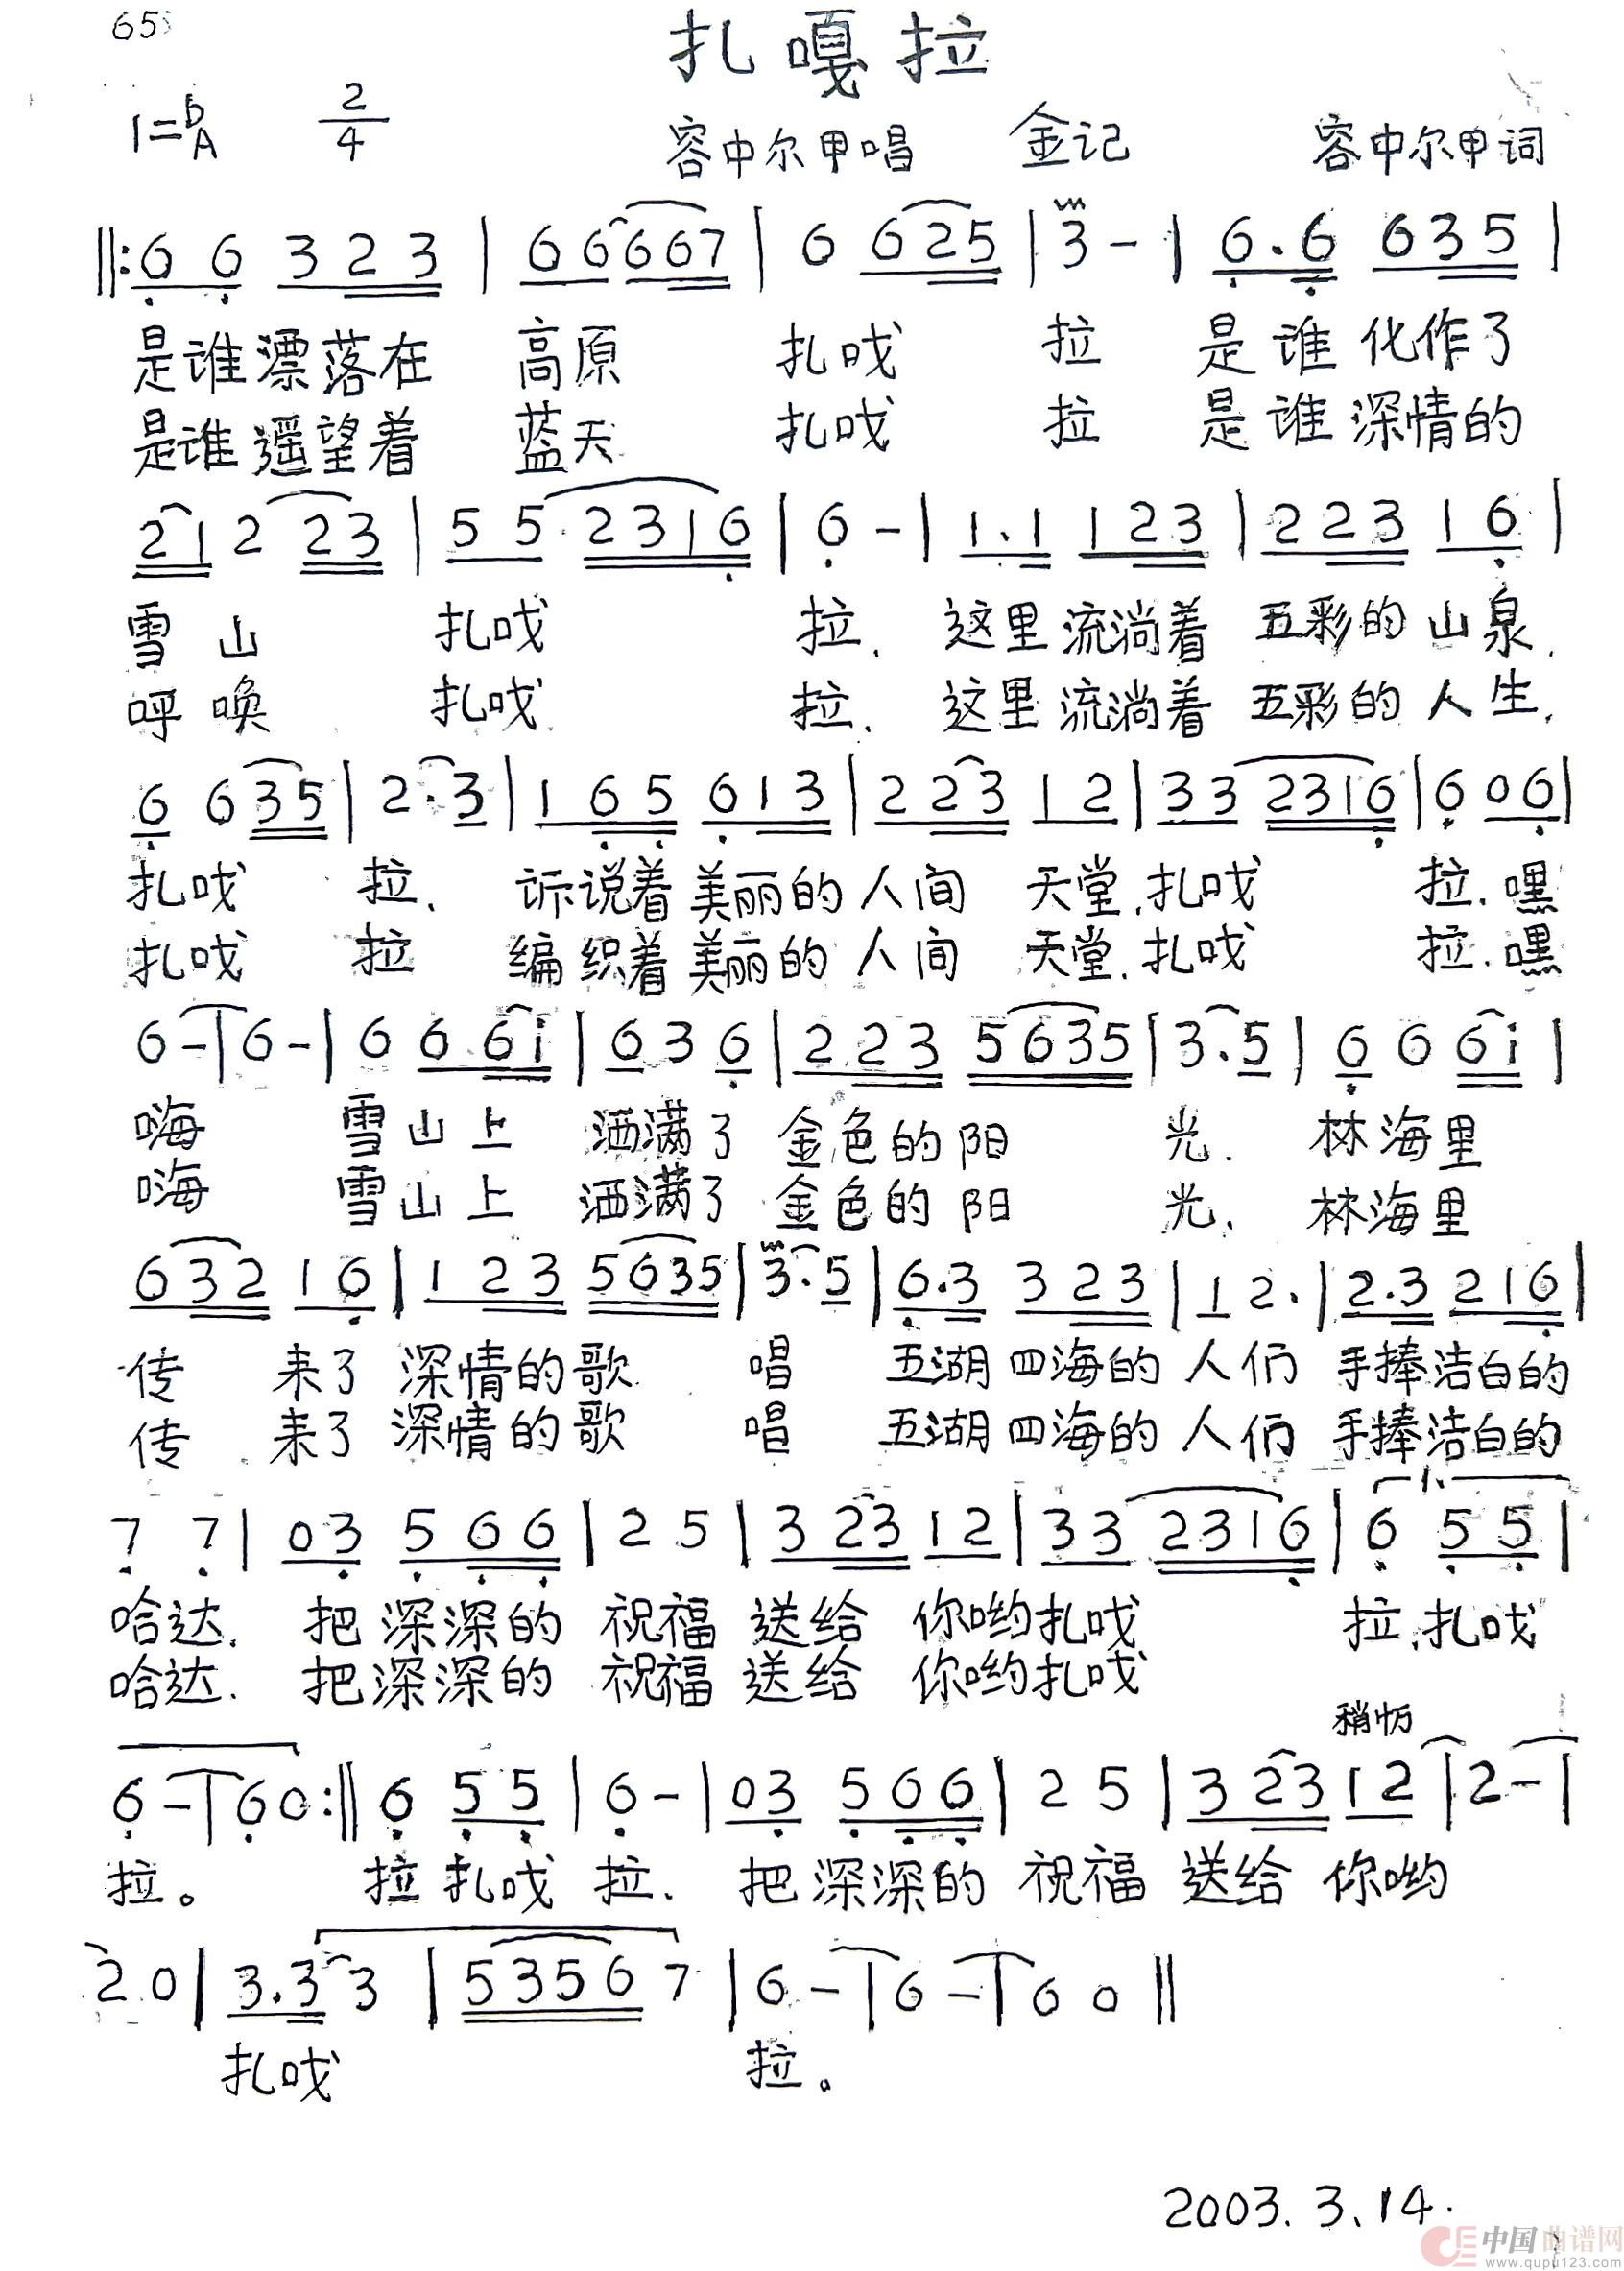 655
扎嘎拉
1=bA 2/4 容中尔甲唱 金记 容中尔甲词
‖: 6 6 3 2 3 | 6 6 6 6 7 | 6 6 2 5 | 3 - | 6 . 6 6 3 5 |
是谁漂落在 高原 扎戗 拉 是谁化作了
是谁遥望着 蓝天 扎戗 拉 是谁深情的
2 1 2 2 3 | 5 5 2 3 1 6 | 6 - | 1 . 1 1 2 3 | 2 2 3 1 6 |
雪山 扎戗 拉. 这里流淌着 五彩的山泉.
呼唤 扎戗 拉. 这里流淌着 五彩的人生.
6 6 3 5 | 2 . 3 | 1 6 5 6 1 3 | 2 2 3 1 2 | 3 3 2 3 1 6 | 6 0 6 |
扎戗 拉. 诉说着美丽的人间 天堂.扎戗 拉.嘿
扎戗 拉 编织着美丽的人间 天堂.扎戗 拉.嘿
6 - | 6 - | 6 6 6 i | 6 3 6 | 2 2 3 5 6 3 5 | 3 . 5 | 6 6 6 i |
嗨 雪山上 洒满了金色的阳 光. 林海里
嗨 雪山上 洒满了金色的阳 光. 林海里
6 3 2 1 6 | 1 2 3 5 6 3 5 | 3 . 5 | 6 . 3 3 2 3 | 1 2 . | 2 . 3 2 1 6 |
传 来了 深情的歌 唱 五湖四海的人们 手捧洁白的
传 来了 深情的歌 唱 五湖四海的人们 手捧洁白的
1.
7 7 | 0 3 5 6 6 | 2 5 | 3 2 3 1 2 | 3 3 2 3 1 6 | 6 5 5 |
哈达. 把深深的 祝福 送给 你哟扎戗 拉.扎戗
哈达. 把深深的 祝福 送给 你哟扎戗
稍忄万
6 - | 6 0 :‖ 6 5 5 | 6 - | 0 3 5 6 6 | 2 5 | 3 2 3 1 2 | 2 - |
拉。 拉扎戗 拉. 把深深的 祝福 送给 你哟
2 0 | 3 . 3 3 | 5 3 5 6 7 | 6 - | 6 - | 6 0 ‖
扎戗 拉。
2003.3.14.
中国曲谱网
www.qupu123.com